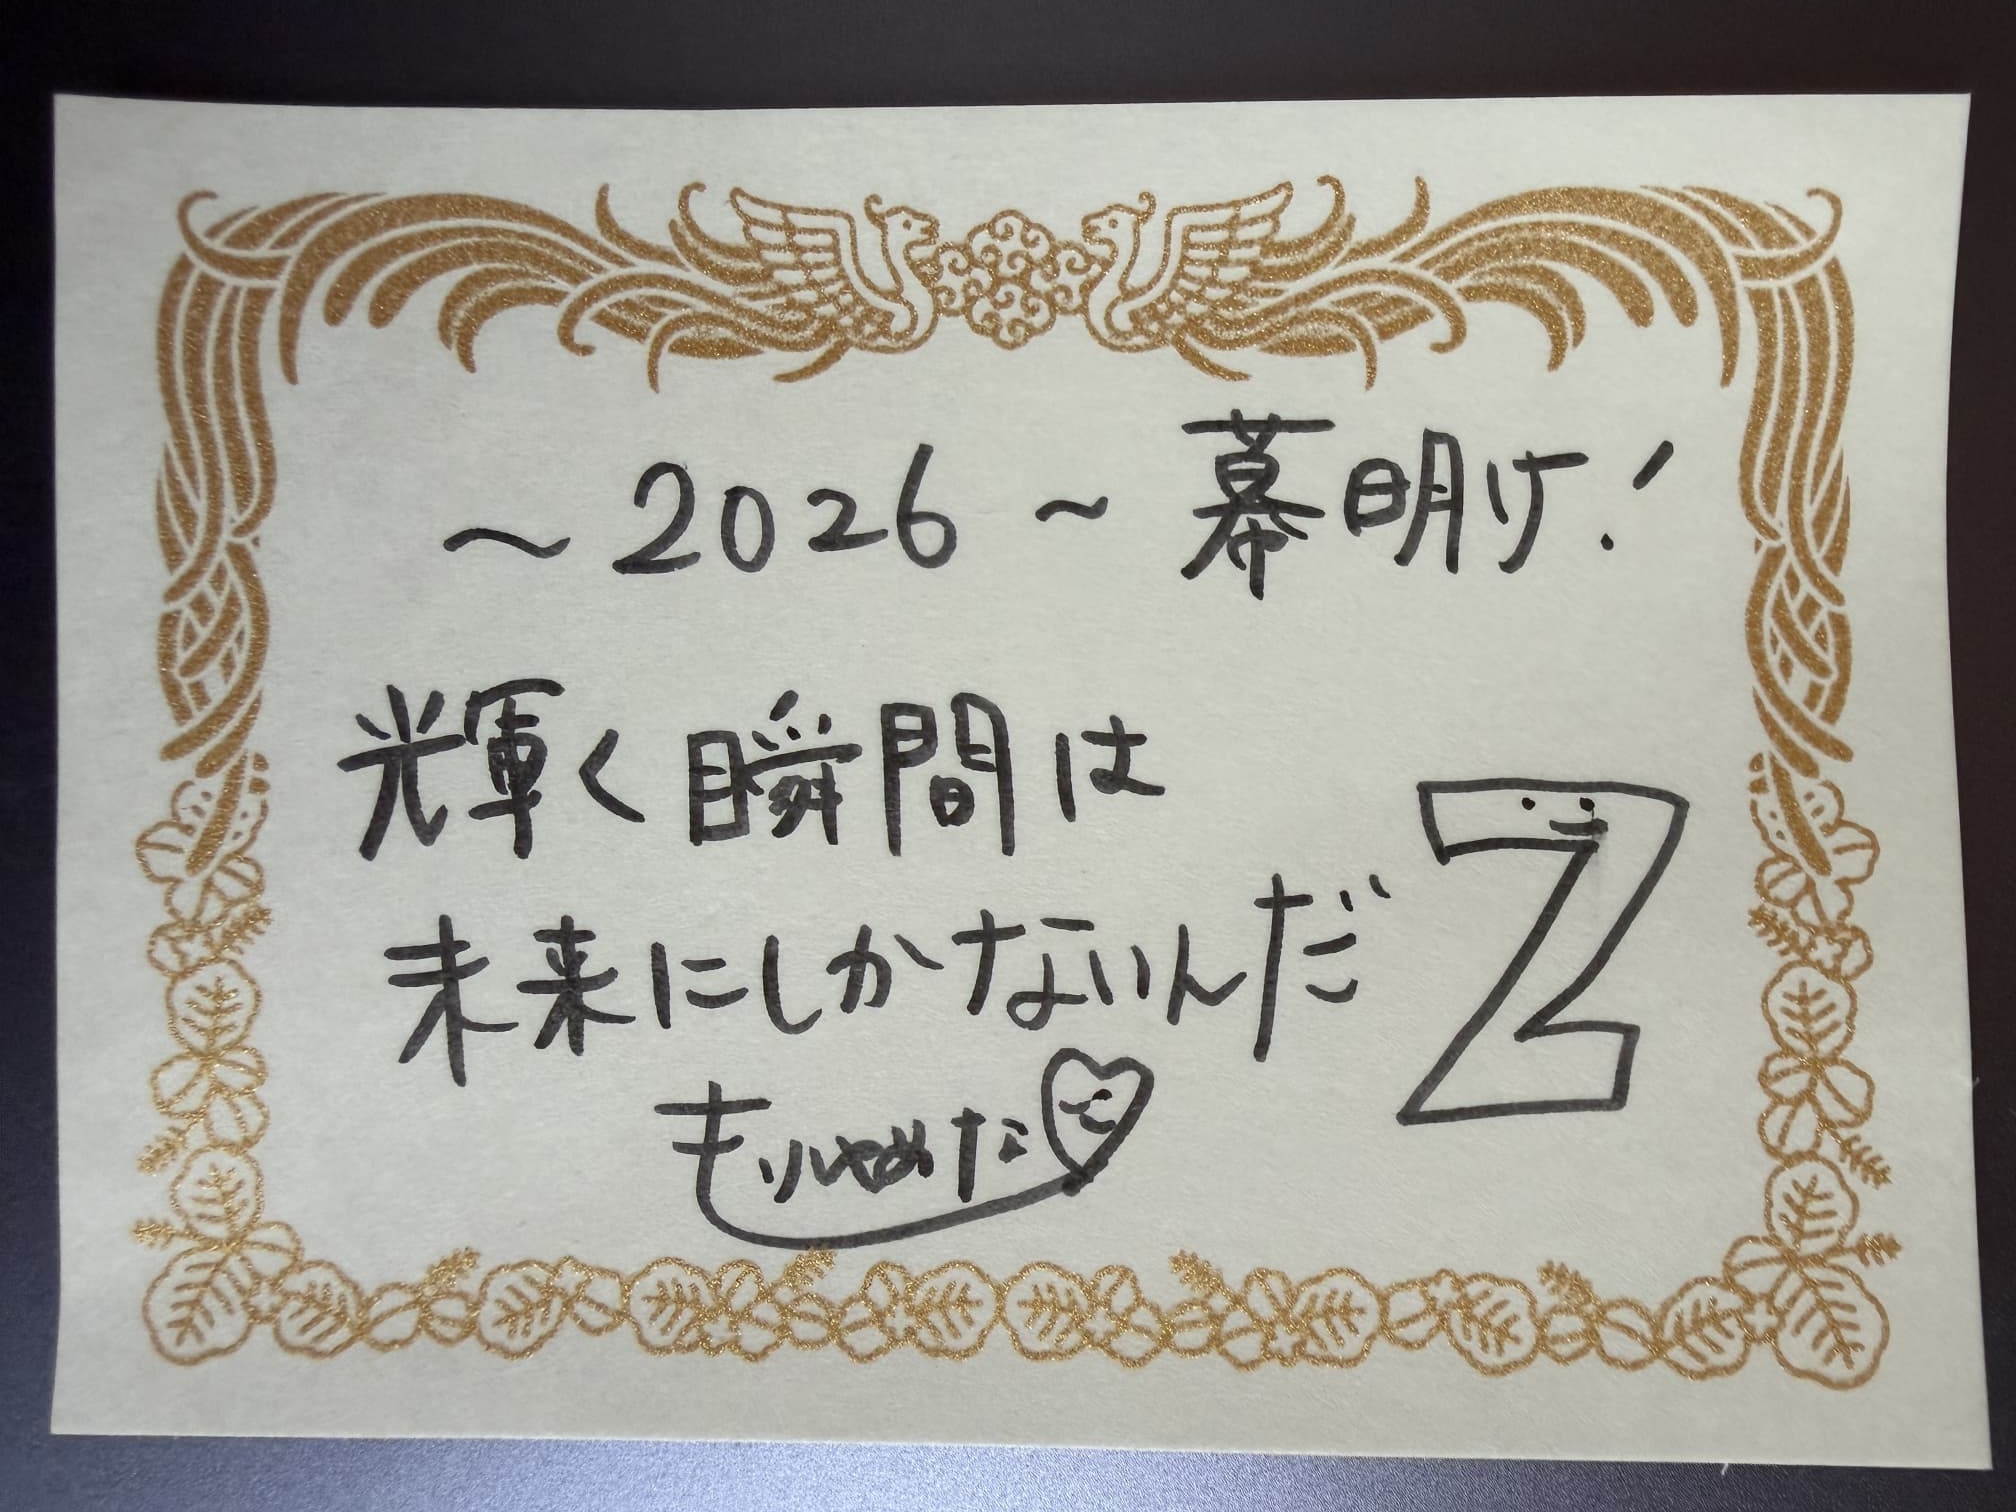 ～2026～幕明け！
輝く瞬間は
未来にしかないんだ
Z